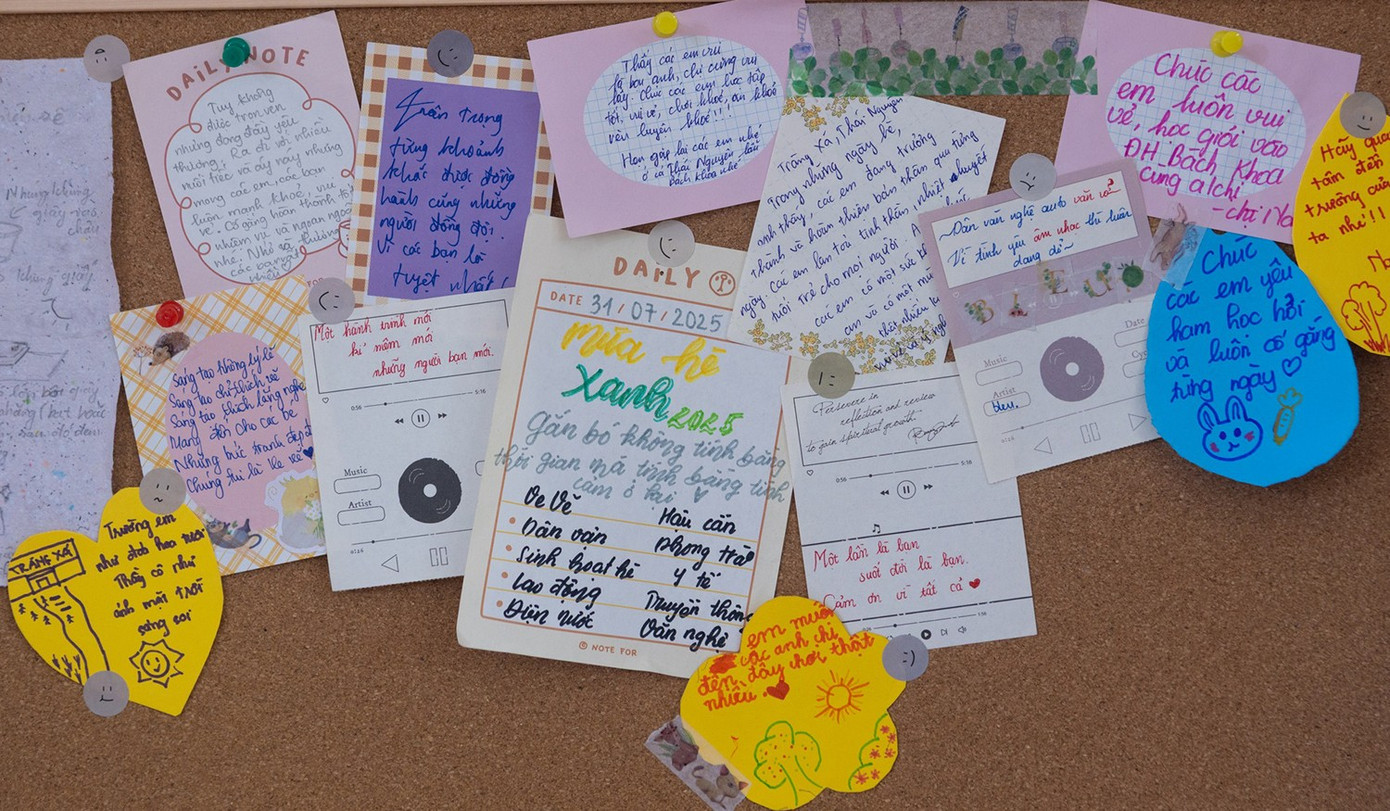 DAILY NOTE
Tuy không
được trọn vẹn
nhưng đong đầy yêu
thương. Ra đi với nhiều
nuối tiếc và áy náy nhưng
mong các em, các bạn
luôn mạnh khoẻ, vui
vẻ. Cố gắng hoàn thành tốt
nhiệm vụ và ngoan ngoãn
nhé. Nhớ và thương
các bạn
Trân trọng
từng khoảnh
khắc được đồng
hành cùng những
người đồng đội.
Vì các bạn là
tuyệt nhất
Thấy các em vui
là bọn anh, chị cũng vui
lây. Chúc các em học tập
tốt, vui vẻ, chơi khoẻ, ăn khoẻ
rèn luyện khoẻ!!!
Hẹn gặp lại các em nhé
ở cả Thái Nguyên lẫn
Bách Khoa nhé
Tràng Xá, Thái Nguyên
Trong những ngày hè,
anh thấy, các em đang trưởng
thành và hoàn thiện bản thân qua từng
ngày. Các em lan toả tinh thần, nhiệt huyết
tuổi trẻ cho mọi người. A
các em có một sức
an và có một
thật nhiều
Chúc các
em luôn vui
vẻ, học giỏi vào
ĐH Bách Khoa
cùng a/chị
- chị Na
Hãy qua
tâm đến
trường của
ta nhé!!
Chúc
các em yêu
ham học hỏi
và luôn cố gắng
từng ngày
Dân văn nghệ auto văn vở?
Vì tình yêu âm nhạc thì luôn
dang dở~
Music
Artist
Date
Sáng tạo không lý lẽ
Sáng tạo chỉ thích vẽ
Sáng tạo thích lắng nghe
Mang đến cho các bé
Những bức tranh đẹp đẽ
Chúng tui là Ve Vẽ
Một hành trình mới
kỉ niệm mới
những người bạn mới.
0:56
5:16
Music
Artist
DAILY
DATE 31/07/2025
Mùa hè
xanh 2025
Gắn bó không tính bằng
thời gian mà tính bằng tình
cảm ở lại
Ve Vẽ
Hậu cần
Dân vận
phong trào
Sinh hoạt hè
Y tế
Lao động
Truyền thông
Điện nước
Văn nghệ
NOTE FOR
Persevere in
reflection and review
to gain spiritual growth
0:56
5:16
Một lần là bạn
suốt đời là bạn.
Cảm ơn vì tất cả
TRÀNG XÁ
Trường em
như đoá hoa tươi
Thầy cô như
ánh mặt trời
sáng soi
em muốn
các anh chị
đến đây chơi thật
nhiều.